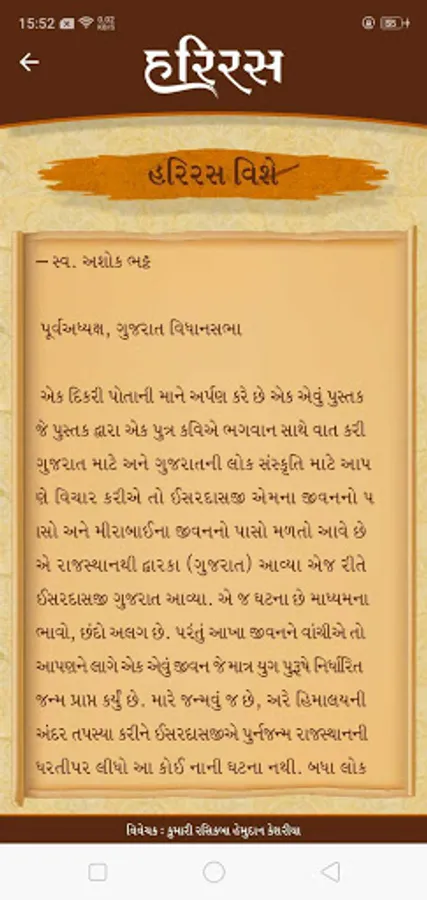 15:52 0.02 KB/s 55
હરિરસ
હરિરસ વિશે
– સ્વ. અશોક ભટ્ટ
પૂર્વઅધ્યક્ષ, ગુજરાત વિધાનસભા
એક દિકરી પોતાની માને અર્પણ કરે છે એક એવું પુસ્તક
જે પુસ્તક દ્વારા એક પુત્ર કવિએ ભગવાન સાથે વાત કરી
ગુજરાત માટે અને ગુજરાતની લોક સંસ્કૃતિ માટે આપ
ણે વિચાર કરીએ તો ઈસરદાસજી એમના જીવનનો પ
ાસો અને મીરાબાઈના જીવનનો પાસો મળતો આવે છે
એ રાજસ્થાનથી દ્વારકા (ગુજરાત) આવ્યા એજ રીતે
ઈસરદાસજી ગુજરાત આવ્યા. એ જ ઘટના છે માધ્યમના
ભાવો, છંદો અલગ છે. પરંતુ આખા જીવનને વાંચીએ તો
આપણને લાગે એક એવું જીવન જે માત્ર યુગ પુરૂષે નિર્ધારિત
જન્મ પ્રાપ્ત કર્યું છે. મારે જન્મવું જ છે, અરે હિમાલયની
અંદર તપસ્યા કરીને ઈસરદાસજીએ પુર્નજન્મ રાજસ્થાનની
ધરતીપર લીધો આ કોઈ નાની ઘટના નથી. બધા લોક
વિવેચક : કુમારી રસિકબા હેમુદાન કેશરીયા